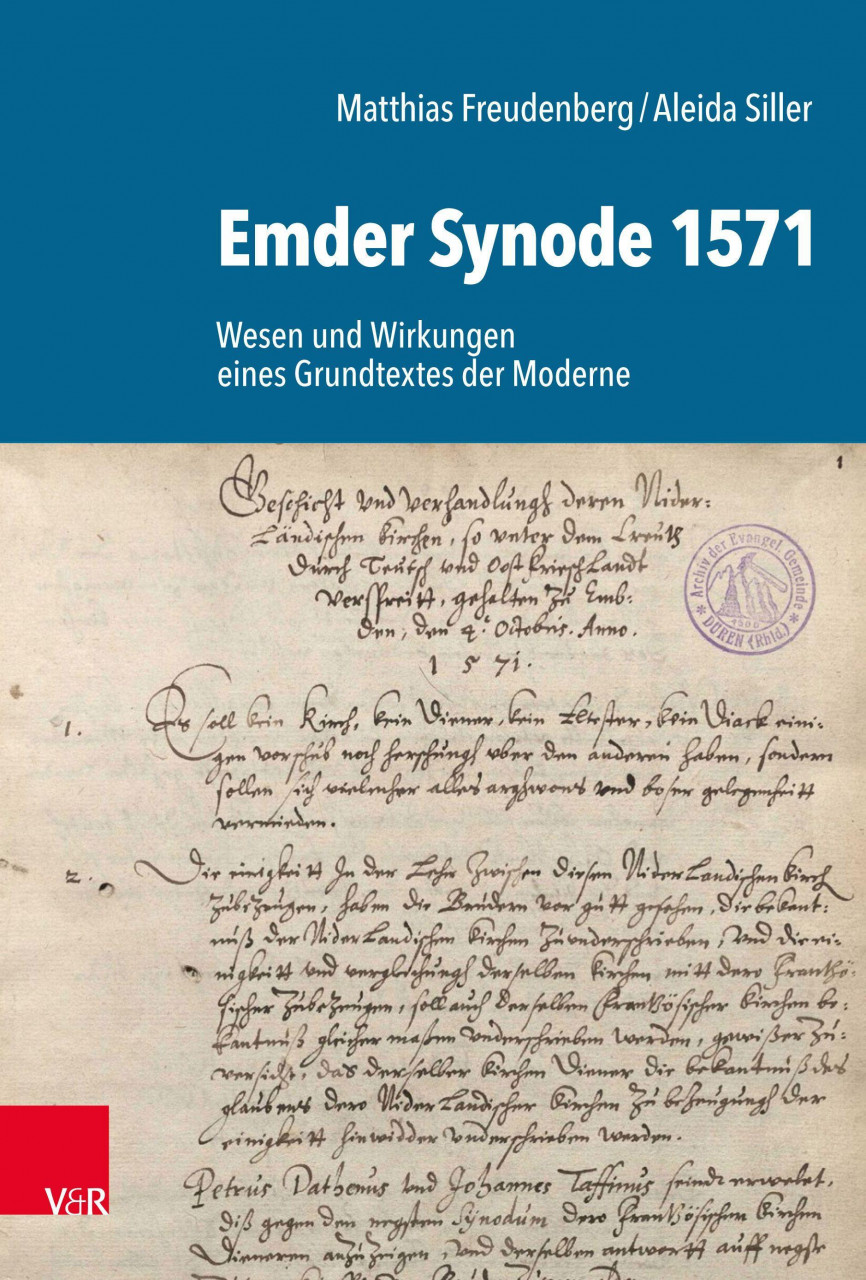 Matthias Freudenberg / Aleida Siller
Emder Synode 1571
Wesen und Wirkungen
eines Grundtextes der Moderne
1
Geschicht vnd verhandlungh deren Nider:
Ländischen kirchen, so vnter dem Creutz
durch Teutsch vnd Oost Frieschlandt
verspreitt, gehalten zu Emb:
den, den 4. Octobris. Anno.
1571.
Archiv der Evangel. Gemeinde
* DÜREN (Rhld.) *
1. Es soll kein Kirch, kein Diener, kein Eltester, kein Diack eini:
gen vorschub noch herschungh vber den anderen haben, sondern
sollen sich vielmher alles arghwons vnd boser gelegenheitt
vermieden.
2. Die einigkeitt In der Lehr zwischen diesen Niderlandischen kirch
zubezeugen, haben die Brudern vor gutt gesehen, die bekant:
nuß der Niderlandischen kirchen zuunderschrieben, vnd die ei:
nigkeitt vnd verglichungh derselben kirchen mitt dero frantzö:
sischer zubezeugen, soll auch derselben frantzösischer kirchen be:
kantnuß gleicher maßen vnderschrieben werden, gewißer zu:
versicht, das derselber kirchen Diener die bekantnuß des
glaubens dero Niderlandischer kirchen zu bezeugungh der
einigkeitt hinwidder vnderschrieben werden.
Petrus Dathenus vnd Johannes Taffinus seindt erwelet,
diß gegen den negsten Synodum dero frantzösischen kirchen
Dieneren anzuzeigen, vnd derselben antwortt auff negste
V&R